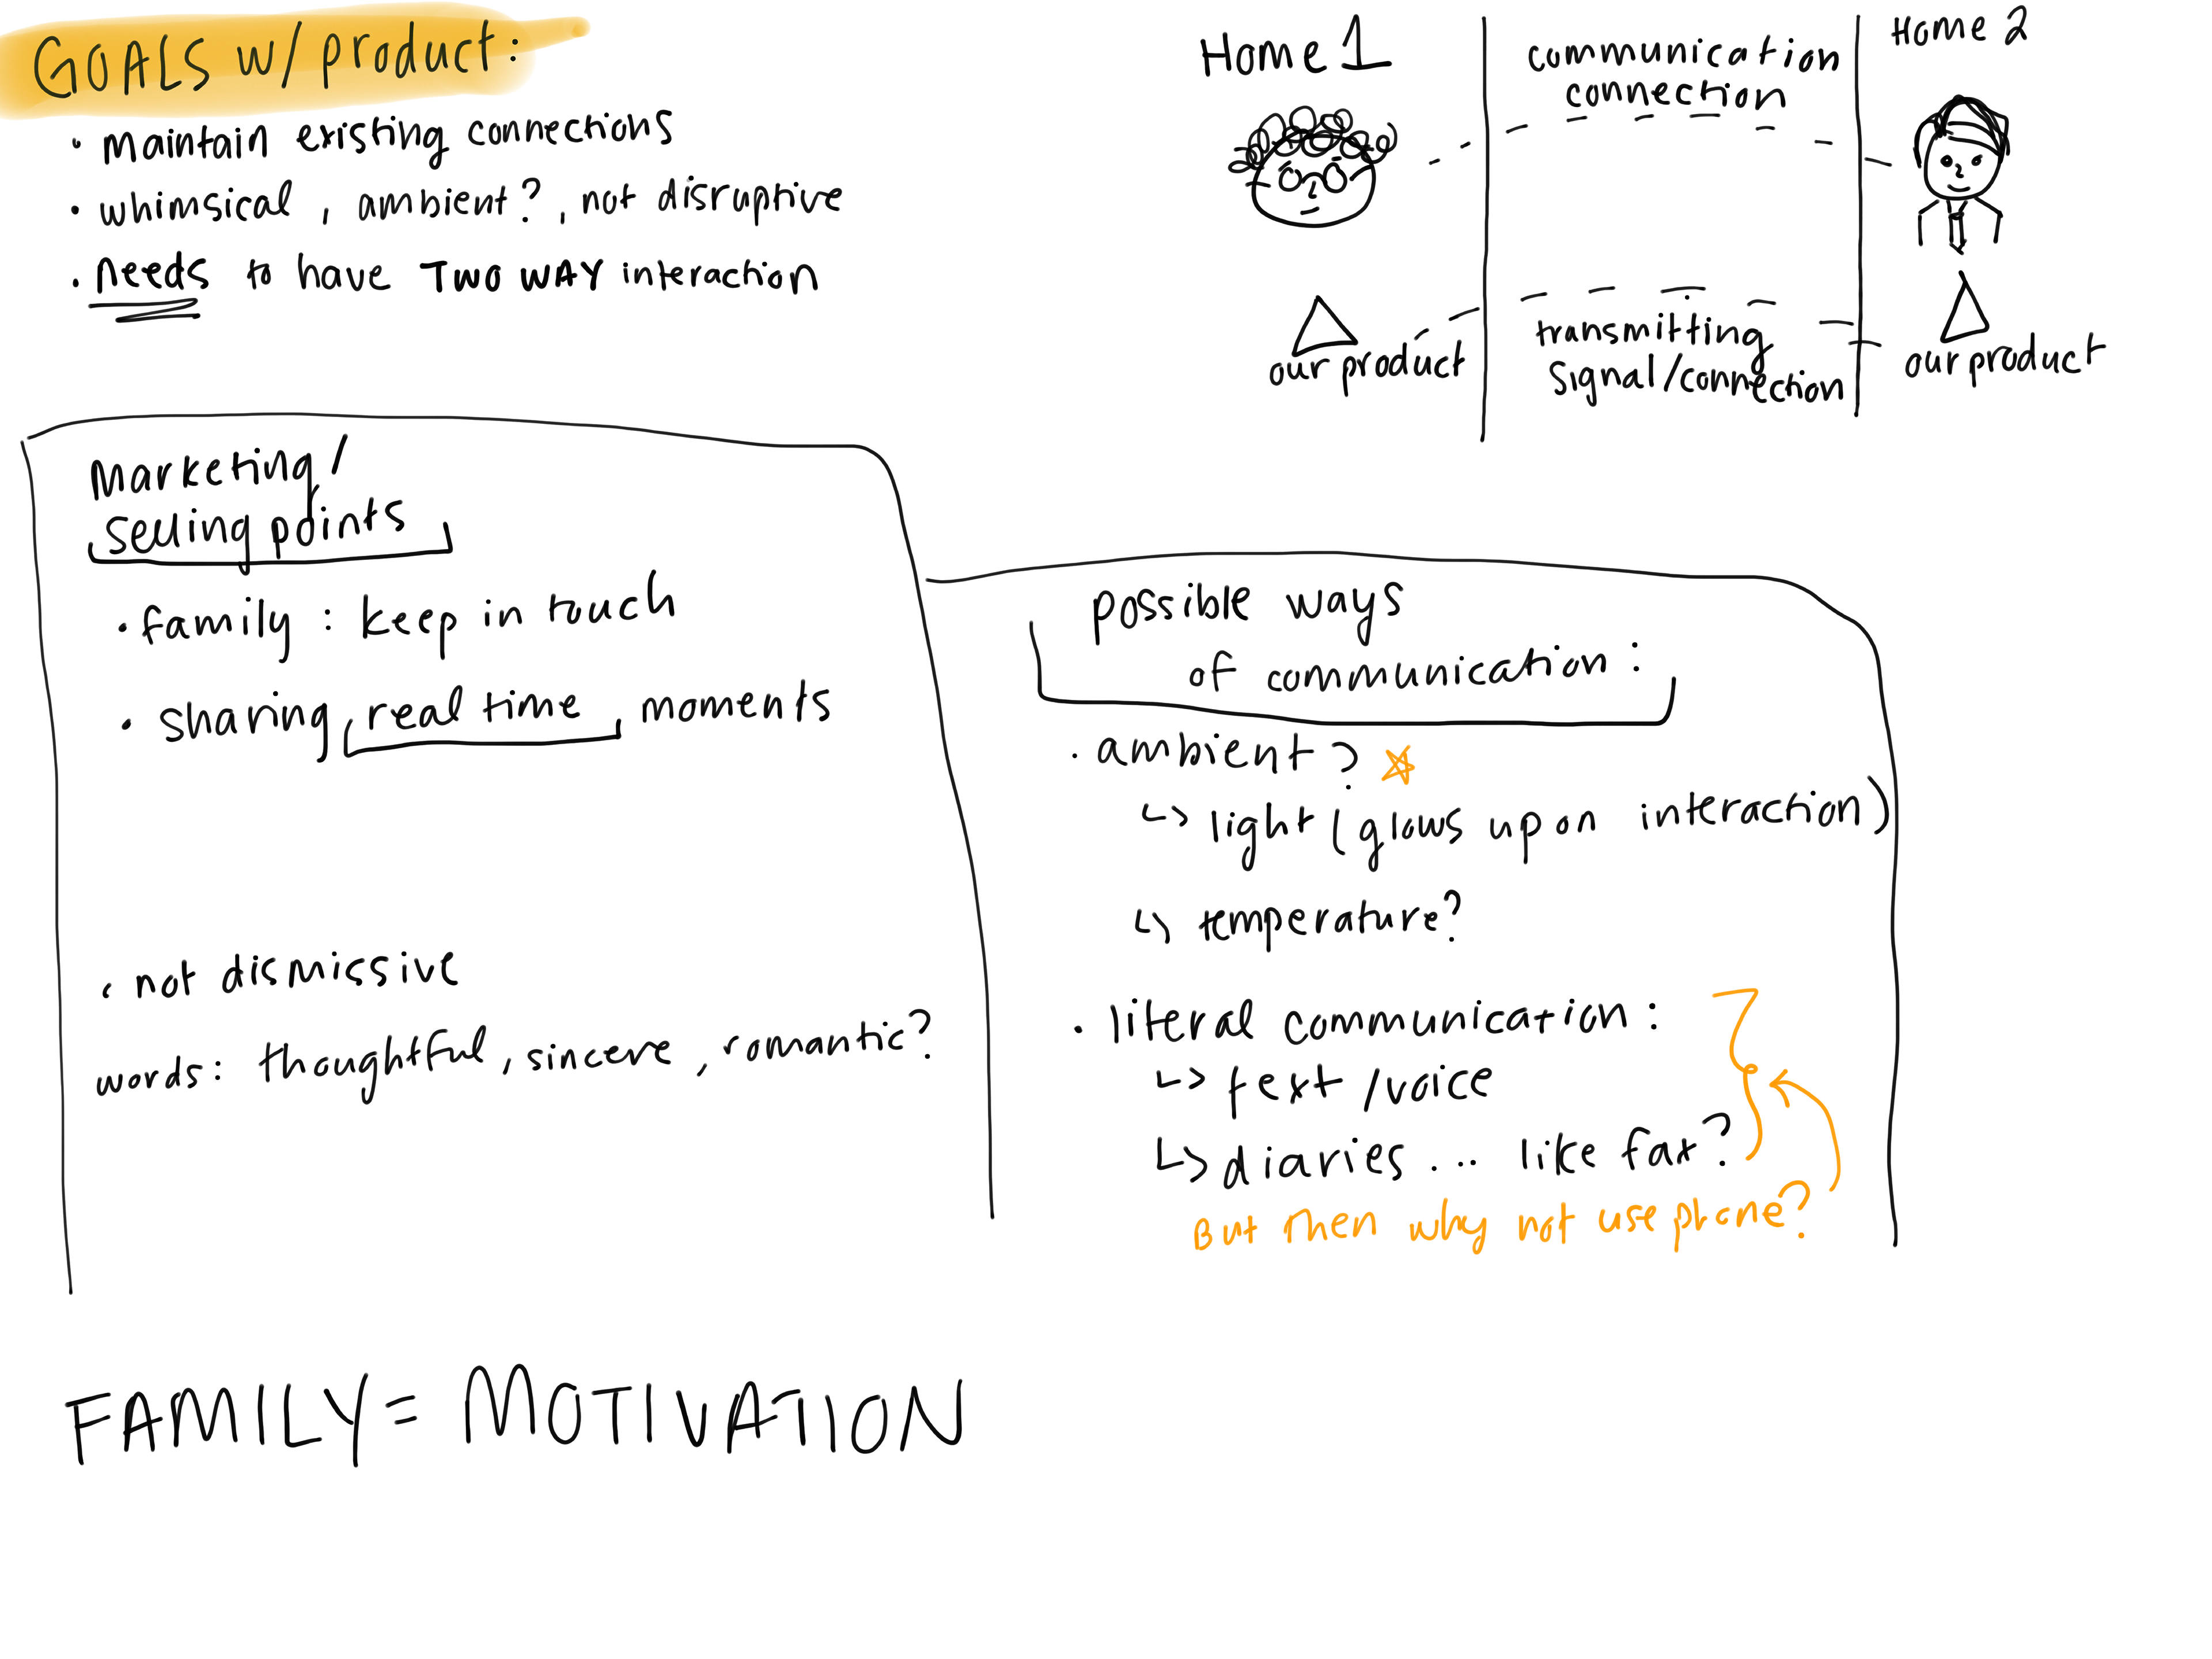 GOALS w/ product:
• maintain existing connections
• whimsical, ambient?, not disruptive
• needs to have TWO WAY interaction
Home 1
communication
connection
Home 2
our product
transmitting
signal/connection
our product
Marketing/
selling points
• family: keep in touch
• sharing real time moments
• not dismissive
words: thoughtful, sincere, romantic?
possible ways
of communication:
• ambient?
↳ light (glows upon interaction)
↳ temperature?
• literal communication:
↳ text/voice
↳ diaries... like fax?
But then why not use phone?
FAMILY = MOTIVATION